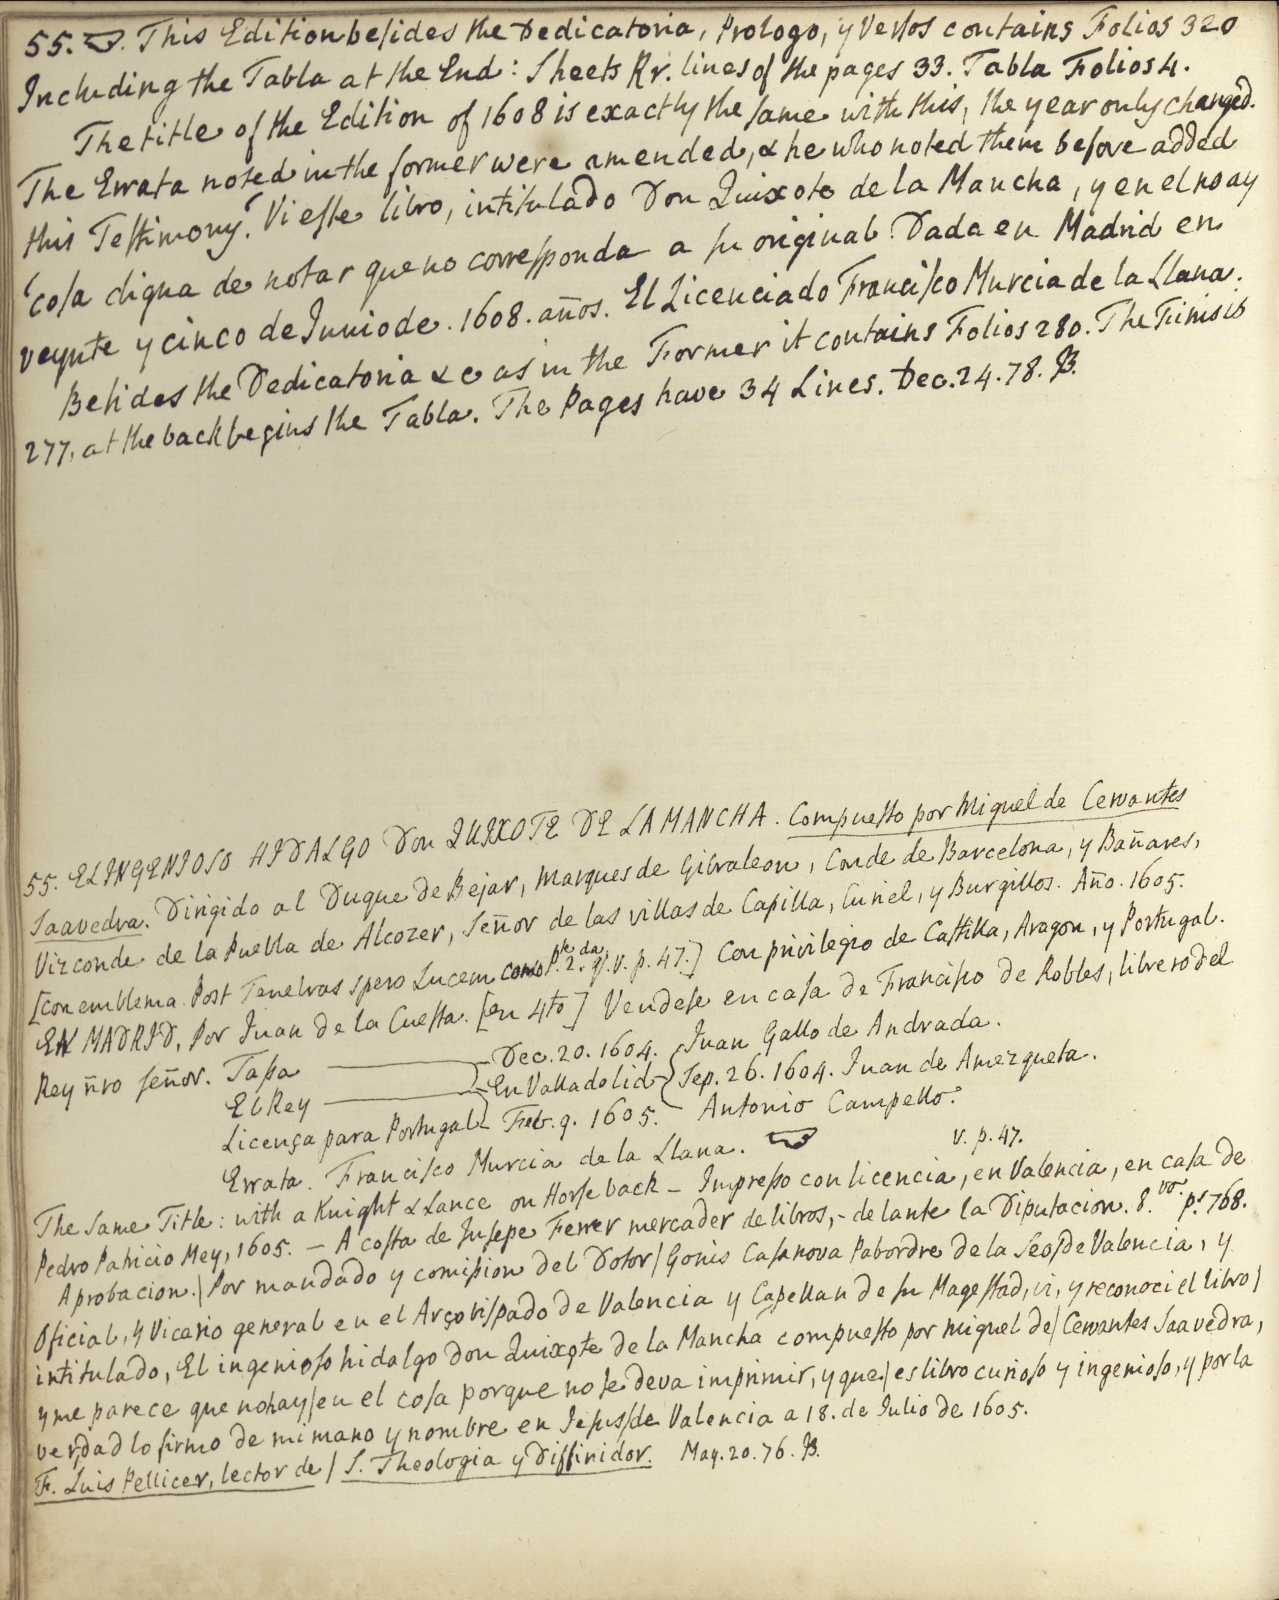 55. ☞. This Edition beſides the Dedicatoria, Prologo, y Verſos contains Folios 320
Including the Tabla at the End: Sheets Rr. lines of the pages 33. Tabla Folios 4.
The title of the Edition of 1608 is exactly the ſame with this, the year only changed.
The Errata noted in the former were amended, & he who noted them before added
this Teſtimony. Vi eſte libro, intitulado Don Quixote de la Mancha, y en el no ay
'coſa digna de notar que no correſponda a ſu original. Dada en Madrid en
veynte y cinco de Junio de. 1608. años. El Licenciado Franciſco Murcia de la Llana.
Beſides the Dedicatoria &c as in the Former it contains Folios 280. The Finis is
277. at the back begins the Tabla. The Pages have 34 Lines. Dec. 24. 78. JB.
55. EL INGENIOSO HIDALGO Don QUIXOTE DE LA MANCHA. Compueſto por Miguel de Cervantes
Saavedra. Dirigido al Duque de Bejar, Marques de Gibraleon, Conde de Barcelona, y Bañares,
Vizconde de la Puebla de Alcozer, Señor de las villas de Capilla, Curiel, y Burgillos. Año. 1605.
[con emblema. Post Tenebras spero Lucem como Pte. 2.da q.v. p. 47.] Con privilegio de Caſtilla, Aragon, y Portugal.
EN MADRID, Por Juan de la Cueſta. [en 4to] Vendeſe en caſa de Franciſco de Robles, librero del
Rey ñro ſeñor. Taſsa Dec. 20. 1604. Juan Gallo de Andrada.
El Rey En Valladolid Sep. 26. 1604. Juan de Amezqueta.
Licença para Portugal Feb. 9. 1605. Antonio Campello.
Errata. Franciſco Murcia de la Llana. ☞ v. p. 47.
The Same Title: with a Knight & Lance on Horſe back – Impreſso con licencia, en Valencia, en caſa de
Pedro Patricio Mey, 1605. – A coſta de Juſepe Ferrer mercader de libros, – delante la Diputacion. 8.vo. ps. 768.
Aprobacion. | Por mandado y comiſsion del Dotor | Gonis Caſanova Pabordre de la Seo | de Valencia, y
Oficial, y Vicario general en el Arçobiſpado de Valencia y Capellan de ſu Mageſtad, vi, y reconoci el libro |
intitulado, El ingenioſo hidalgo don Quixote de la Mancha compueſto por Miguel de | Cervantes Saavedra,
y me parece que no hay | en el coſa porque no ſe deva imprimir, y que | es libro curioſo y ingenioſo, y por la
verdad lo firmo de mi mano y nombre en Jeſus | de Valencia a 18. de Julio de 1605.
F. Luis Pellicer, lector de | S. Theologia y Diffinidor. May. 20. 76. JB.